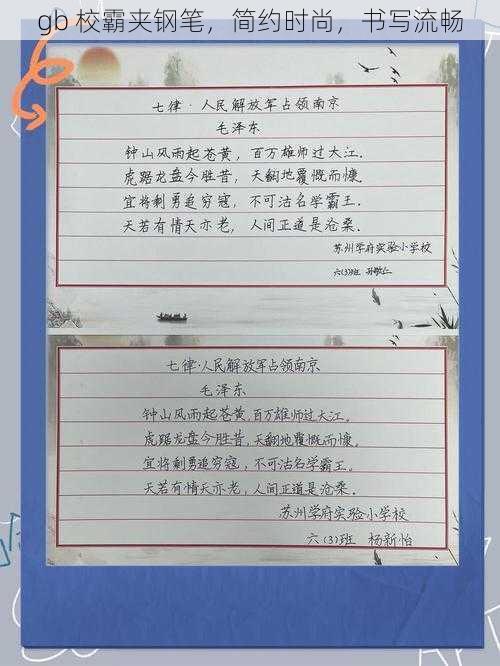 gb 校霸夹钢笔，简约时尚，书写流畅
七律·人民解放军占领南京
毛泽东
钟山风雨起苍黄，百万雄师过大江.
虎踞龙盘今胜昔，天翻地覆慨而慷.
宜将剩勇追穷寇，不可沽名学霸王.
天若有情天亦老，人间正道是沧桑.
苏州学府实验小学校
六(3)班
七律·人民解放军占领南京
毛泽东
钟山风雨起苍黄,百万雄师过大江。
虎踞龙盘今胜昔,天翻地覆慨而慷。
宜将剩勇追穷寇,不可沽名学霸王。
天若有情天亦老,人间正道是沧桑.
苏州学府实验小学校
六(3)班 杨新怡